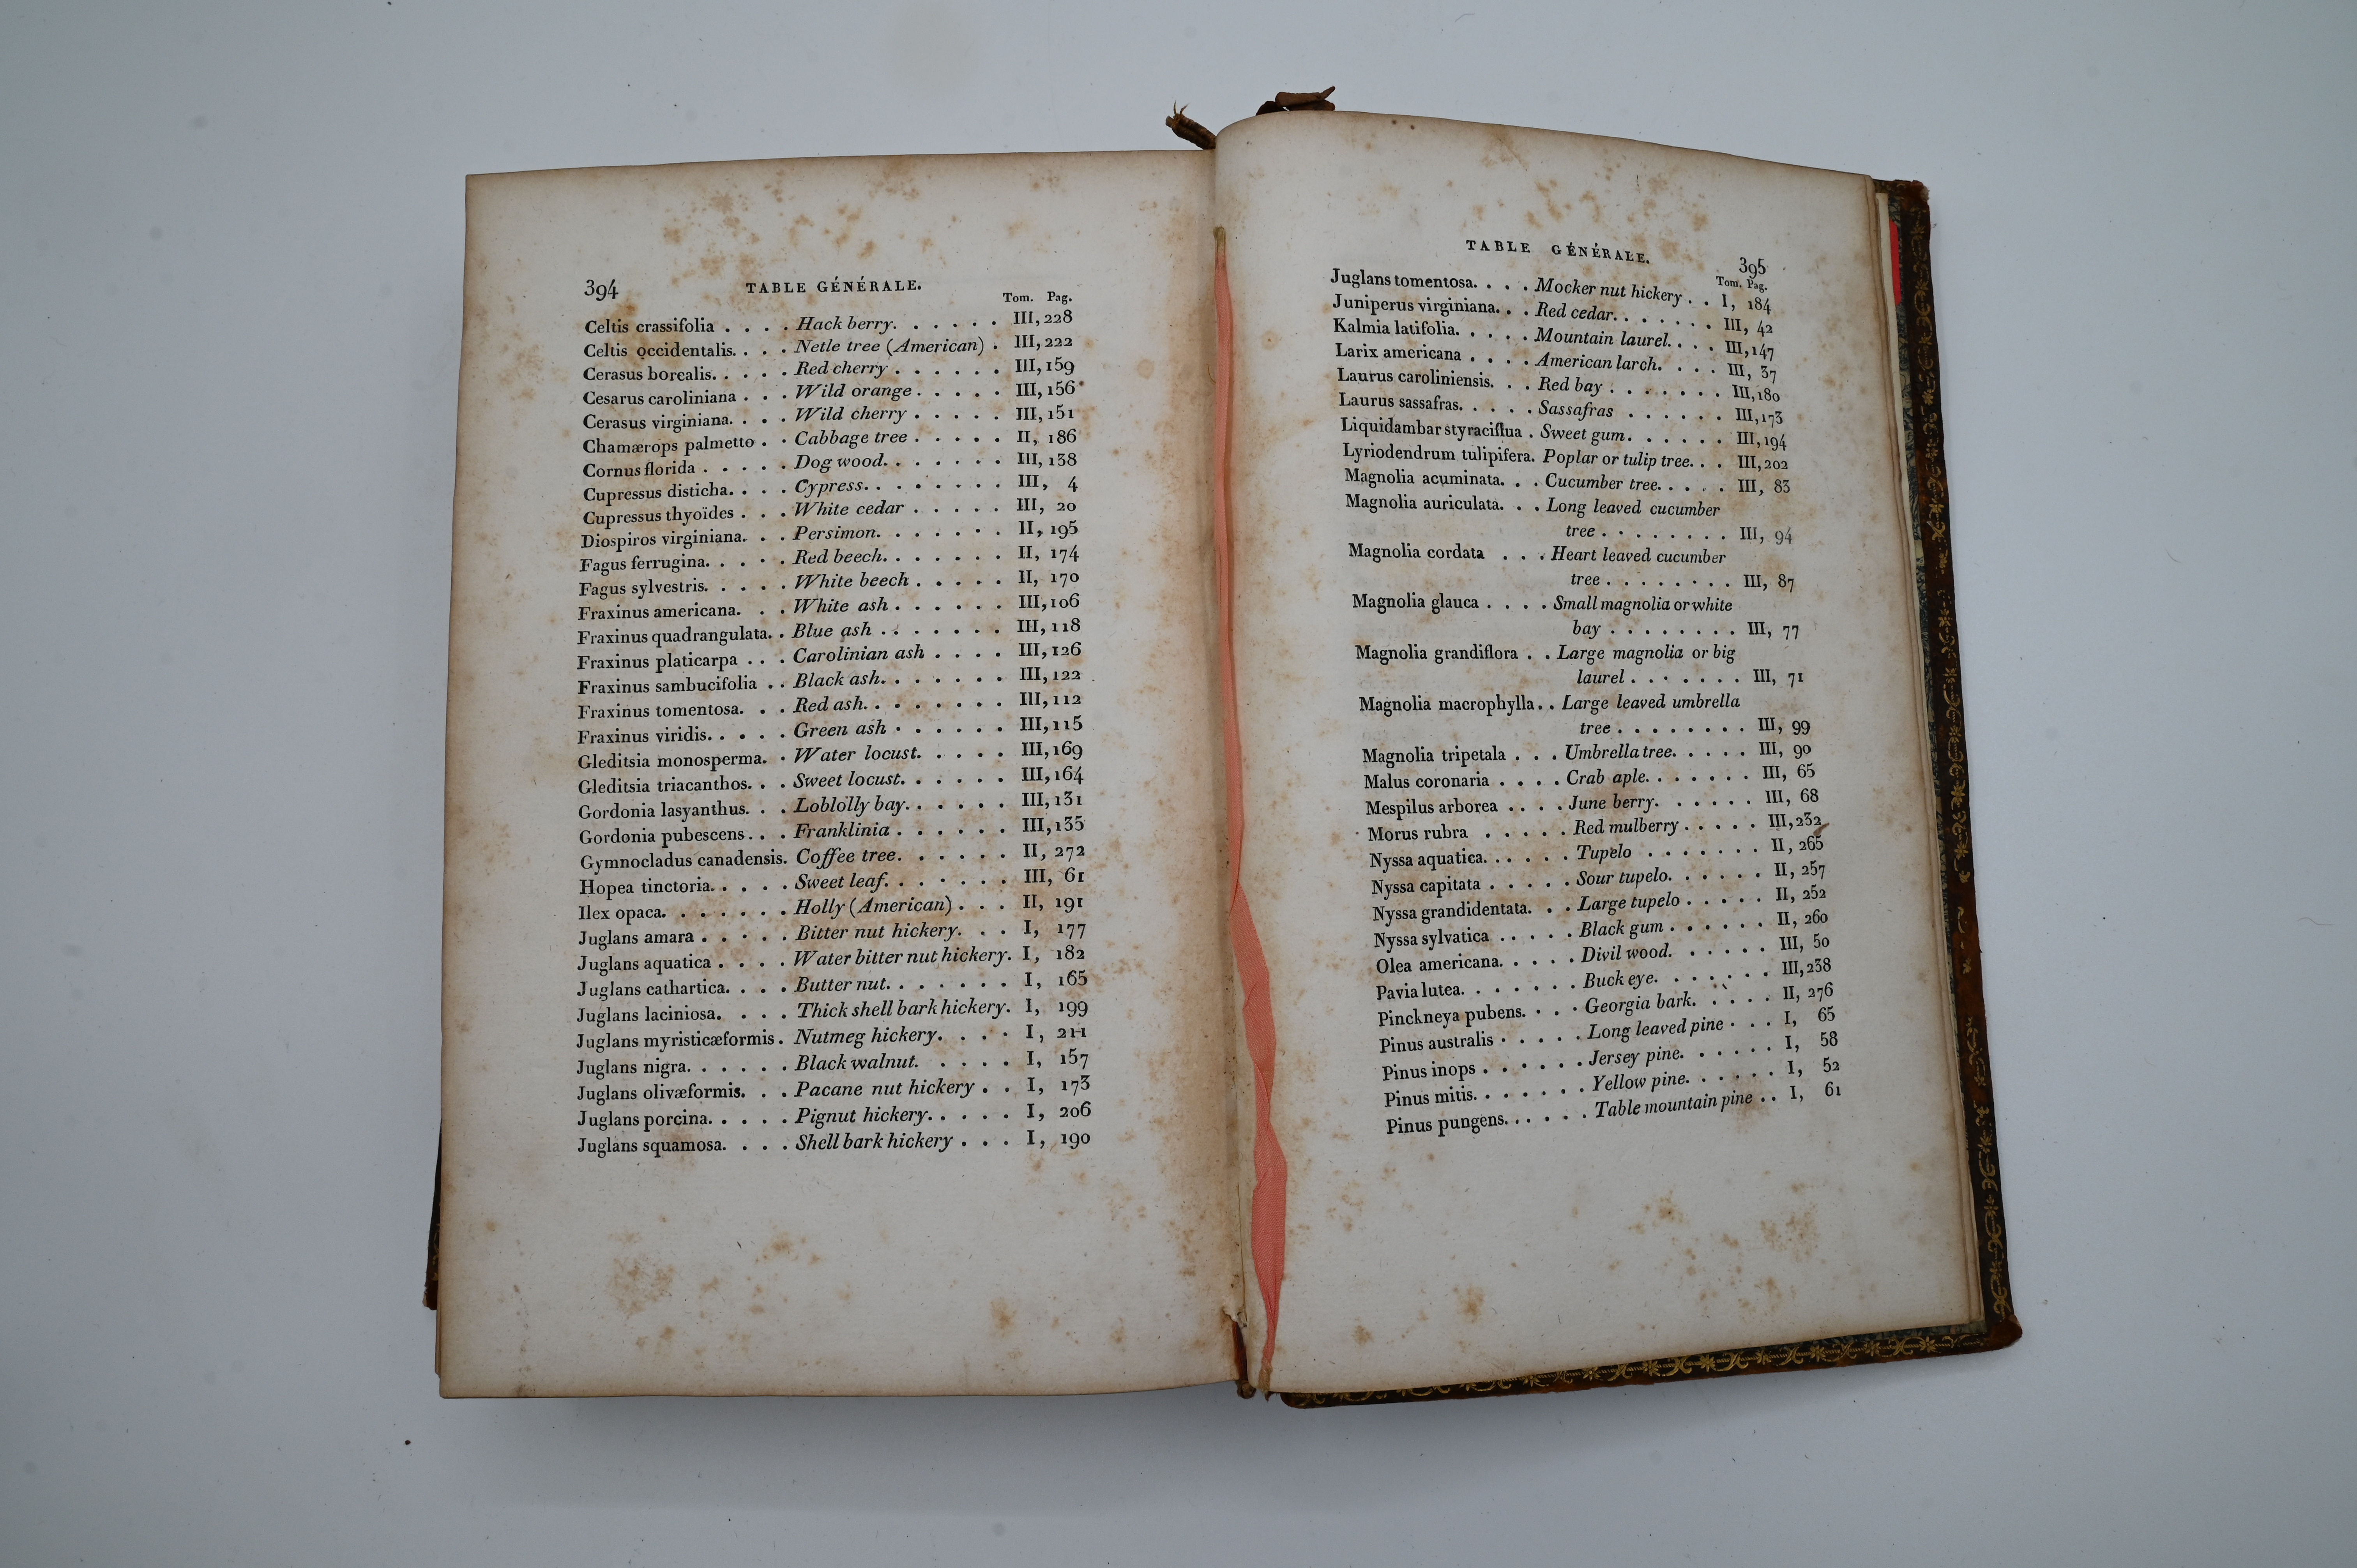 394 TABLE GÉNÉRALE.
Tom. Pag.
Celtis crassifolia . . . . Hack berry. . . . . . III, 228
Celtis occidentalis. . . . Netle tree (American) . III, 222
Cerasus borealis. . . . . Red cherry . . . . . . III, 159
Cesarus caroliniana . . . Wild orange . . . . . III, 156
Cerasus virginiana. . . . Wild cherry . . . . . III, 151
Chamærops palmetto . . Cabbage tree . . . . . II, 186
Cornus florida . . . . . Dog wood. . . . . . . III, 138
Cupressus disticha. . . . Cypress. . . . . . . . III, 4
Cupressus thyoïdes . . . White cedar . . . . . III, 20
Diospiros virginiana. . . Persimon. . . . . . . II, 195
Fagus ferrugina. . . . . Red beech. . . . . . . II, 174
Fagus sylvestris. . . . . White beech . . . . . II, 170
Fraxinus americana. . . White ash . . . . . . III, 106
Fraxinus quadrangulata. . Blue ash . . . . . . . III, 118
Fraxinus platicarpa . . . Carolinian ash . . . . III, 126
Fraxinus sambucifolia . . Black ash. . . . . . . III, 122
Fraxinus tomentosa. . . Red ash. . . . . . . . III, 112
Fraxinus viridis. . . . . Green ash . . . . . . III, 115
Gleditsia monosperma. . Water locust. . . . . III, 169
Gleditsia triacanthos. . . Sweet locust. . . . . . III, 164
Gordonia lasyanthus. . . Loblolly bay. . . . . . III, 131
Gordonia pubescens . . . Franklinia . . . . . . III, 135
Gymnocladus canadensis. Coffee tree. . . . . . II, 272
Hopea tinctoria. . . . . Sweet leaf. . . . . . . III, 61
Ilex opaca. . . . . . . Holly (American) . . . II, 191
Juglans amara . . . . . Bitter nut hickery. . . I, 177
Juglans aquatica . . . . Water bitter nut hickery. I, 182
Juglans cathartica. . . . Butter nut. . . . . . . I, 165
Juglans laciniosa. . . . Thick shell bark hickery. I, 199
Juglans myristicæformis . Nutmeg hickery. . . . I, 211
Juglans nigra. . . . . . Black walnut. . . . . I, 157
Juglans olivæformis. . . Pacane nut hickery . . I, 173
Juglans porcina. . . . . Pignut hickery. . . . . I, 206
Juglans squamosa. . . . Shell bark hickery . . . I, 190
TABLE GÉNÉRALE. 395
Tom. Pag.
Juglans tomentosa. . . . Mocker nut hickery . . I, 184
Juniperus virginiana. . . Red cedar. . . . . . . III, 42
Kalmia latifolia. . . . . Mountain laurel. . . . III, 147
Larix americana . . . . American larch. . . . III, 37
Laurus caroliniensis. . . Red bay . . . . . . . III, 180
Laurus sassafras. . . . . Sassafras . . . . . . III, 173
Liquidambar styraciflua . Sweet gum. . . . . . III, 194
Lyriodendrum tulipifera. Poplar or tulip tree. . . III, 202
Magnolia acuminata. . . Cucumber tree. . . . . III, 83
Magnolia auriculata. . . Long leaved cucumber
tree . . . . . . . . III, 94
Magnolia cordata . . . Heart leaved cucumber
tree . . . . . . . . III, 87
Magnolia glauca . . . . Small magnolia or white
bay . . . . . . . . III, 77
Magnolia grandiflora . . Large magnolia or big
laurel . . . . . . . III, 71
Magnolia macrophylla . . Large leaved umbrella
tree . . . . . . . . III, 99
Magnolia tripetala . . . Umbrella tree. . . . . III, 90
Malus coronaria . . . . Crab aple. . . . . . . III, 65
Mespilus arborea . . . . June berry. . . . . . III, 68
Morus rubra . . . . . Red mulberry . . . . . III, 232
Nyssa aquatica. . . . . . Tupelo . . . . . . . II, 265
Nyssa capitata . . . . . Sour tupelo. . . . . . II, 257
Nyssa grandidentata. . . Large tupelo . . . . . II, 252
Nyssa sylvatica . . . . . Black gum . . . . . . II, 260
Olea americana. . . . . Divil wood. . . . . . III, 50
Pavia lutea. . . . . . . Buck eye. . . . . . . III, 238
Pinckneya pubens. . . . Georgia bark. . . . . II, 276
Pinus australis . . . . . Long leaved pine . . . I, 65
Pinus inops . . . . . . Jersey pine. . . . . . I, 58
Pinus mitis. . . . . . . Yellow pine. . . . . . I, 52
Pinus pungens. . . . . . Table mountain pine . . I, 61